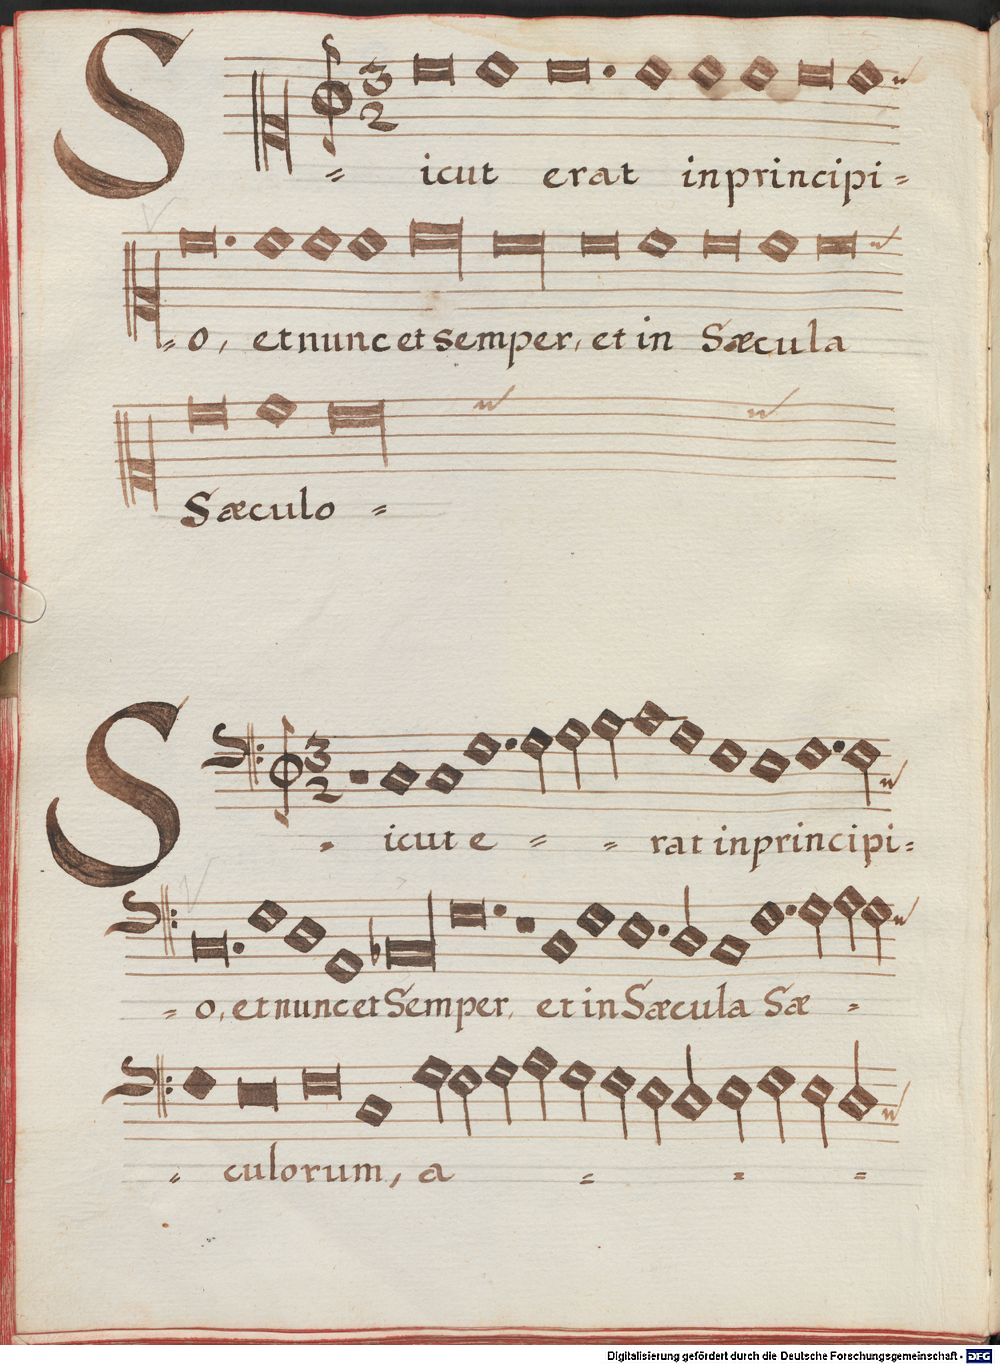 Sicut erat in principi=
=o, et nunc et semper, et in Sæcula
Sæculo =
Sicut e = = rat in principi=
=o, et nunc et Semper, et in Sæcula Sæ =
= culorum, a = = =
Digitalisierung gefördert durch die Deutsche Forschungsgemeinschaft - DFG